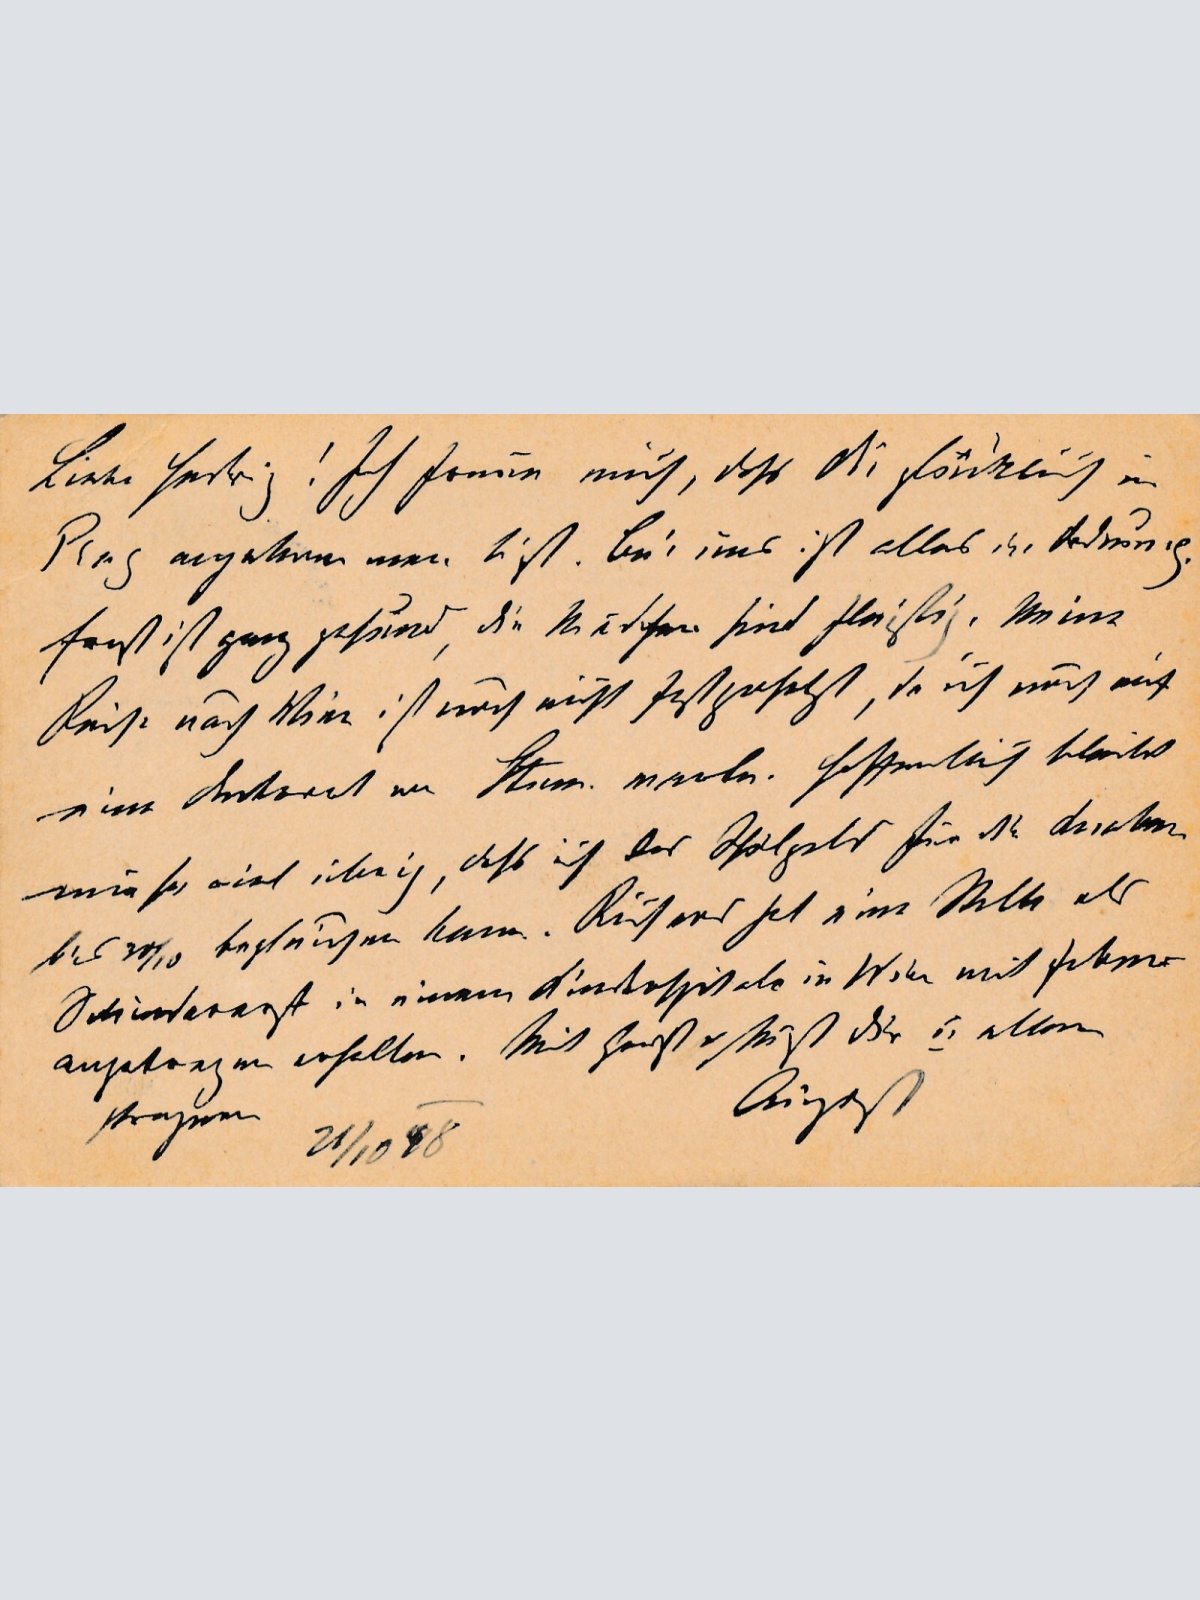 Liebe Hedwig! Ich freue mich, daß Du glücklich in
Prag angekommen bist. Bei uns ist alles in Ordnung.
Ernst ist ganz gesund, die Mädchen sind fleißig. Meine
Reise nach Wien ist noch nicht festgesetzt, da ich noch auf
eine Antwort von warte. Hoffentlich bleibt
mir so viel übrig, daß ich das Schulgeld für die
bis 30/10 begleichen kann. Richard hat eine Stelle als
in einem Kinderspitale in Wien mit
angetragen erhalten. Mit Gruß Dir u allen
August
21/10 98